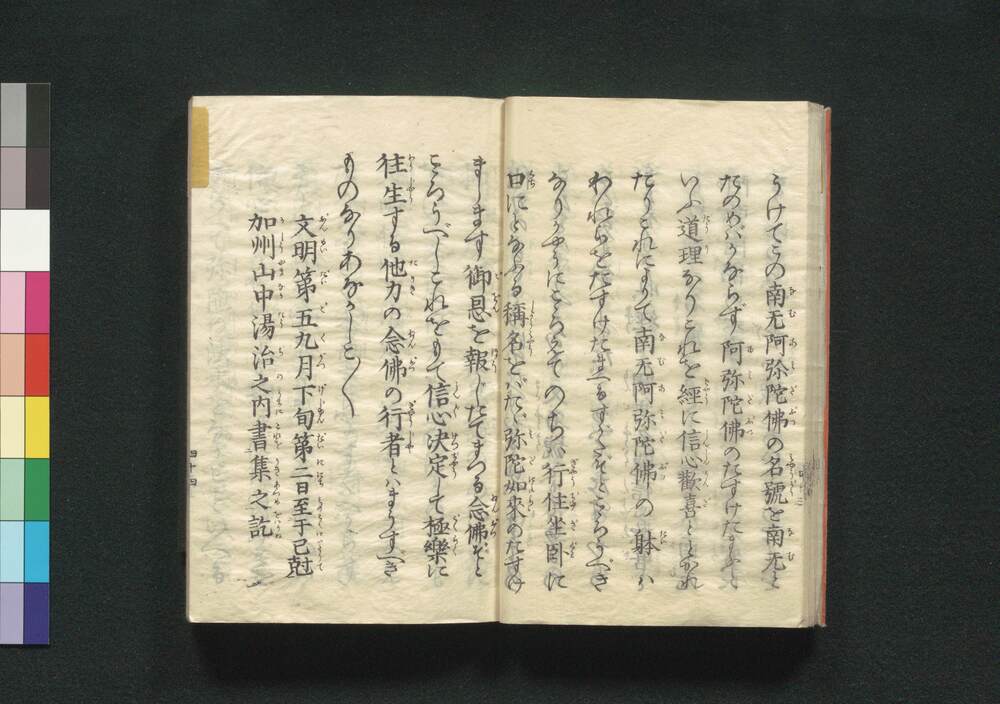 うけてこの南无阿弥陀佛の名號を南无と
たのめばかならず阿弥陀佛のたすけたまふと
いふ道理なりこれを經に信心歡喜ととかれ
たりこれによりて南无阿弥陀佛の躰は
われらをたすけたまへるすがたぞとこゝろうべき
なりかやうにこゝろえてのちは行住坐卧に
口にとなふる稱名をばたゞ弥陀如來のたすけ
まします御恩を報じたてまつる念佛ぞと
こゝろうべしこれをもて信心决定して極樂に
往生する他力の念佛の行者とはまうすべき
ものなりあなかしこ〱
文明第五九月下旬第二日至于巳尅
加州山中湯治之内書集之訖
四十四